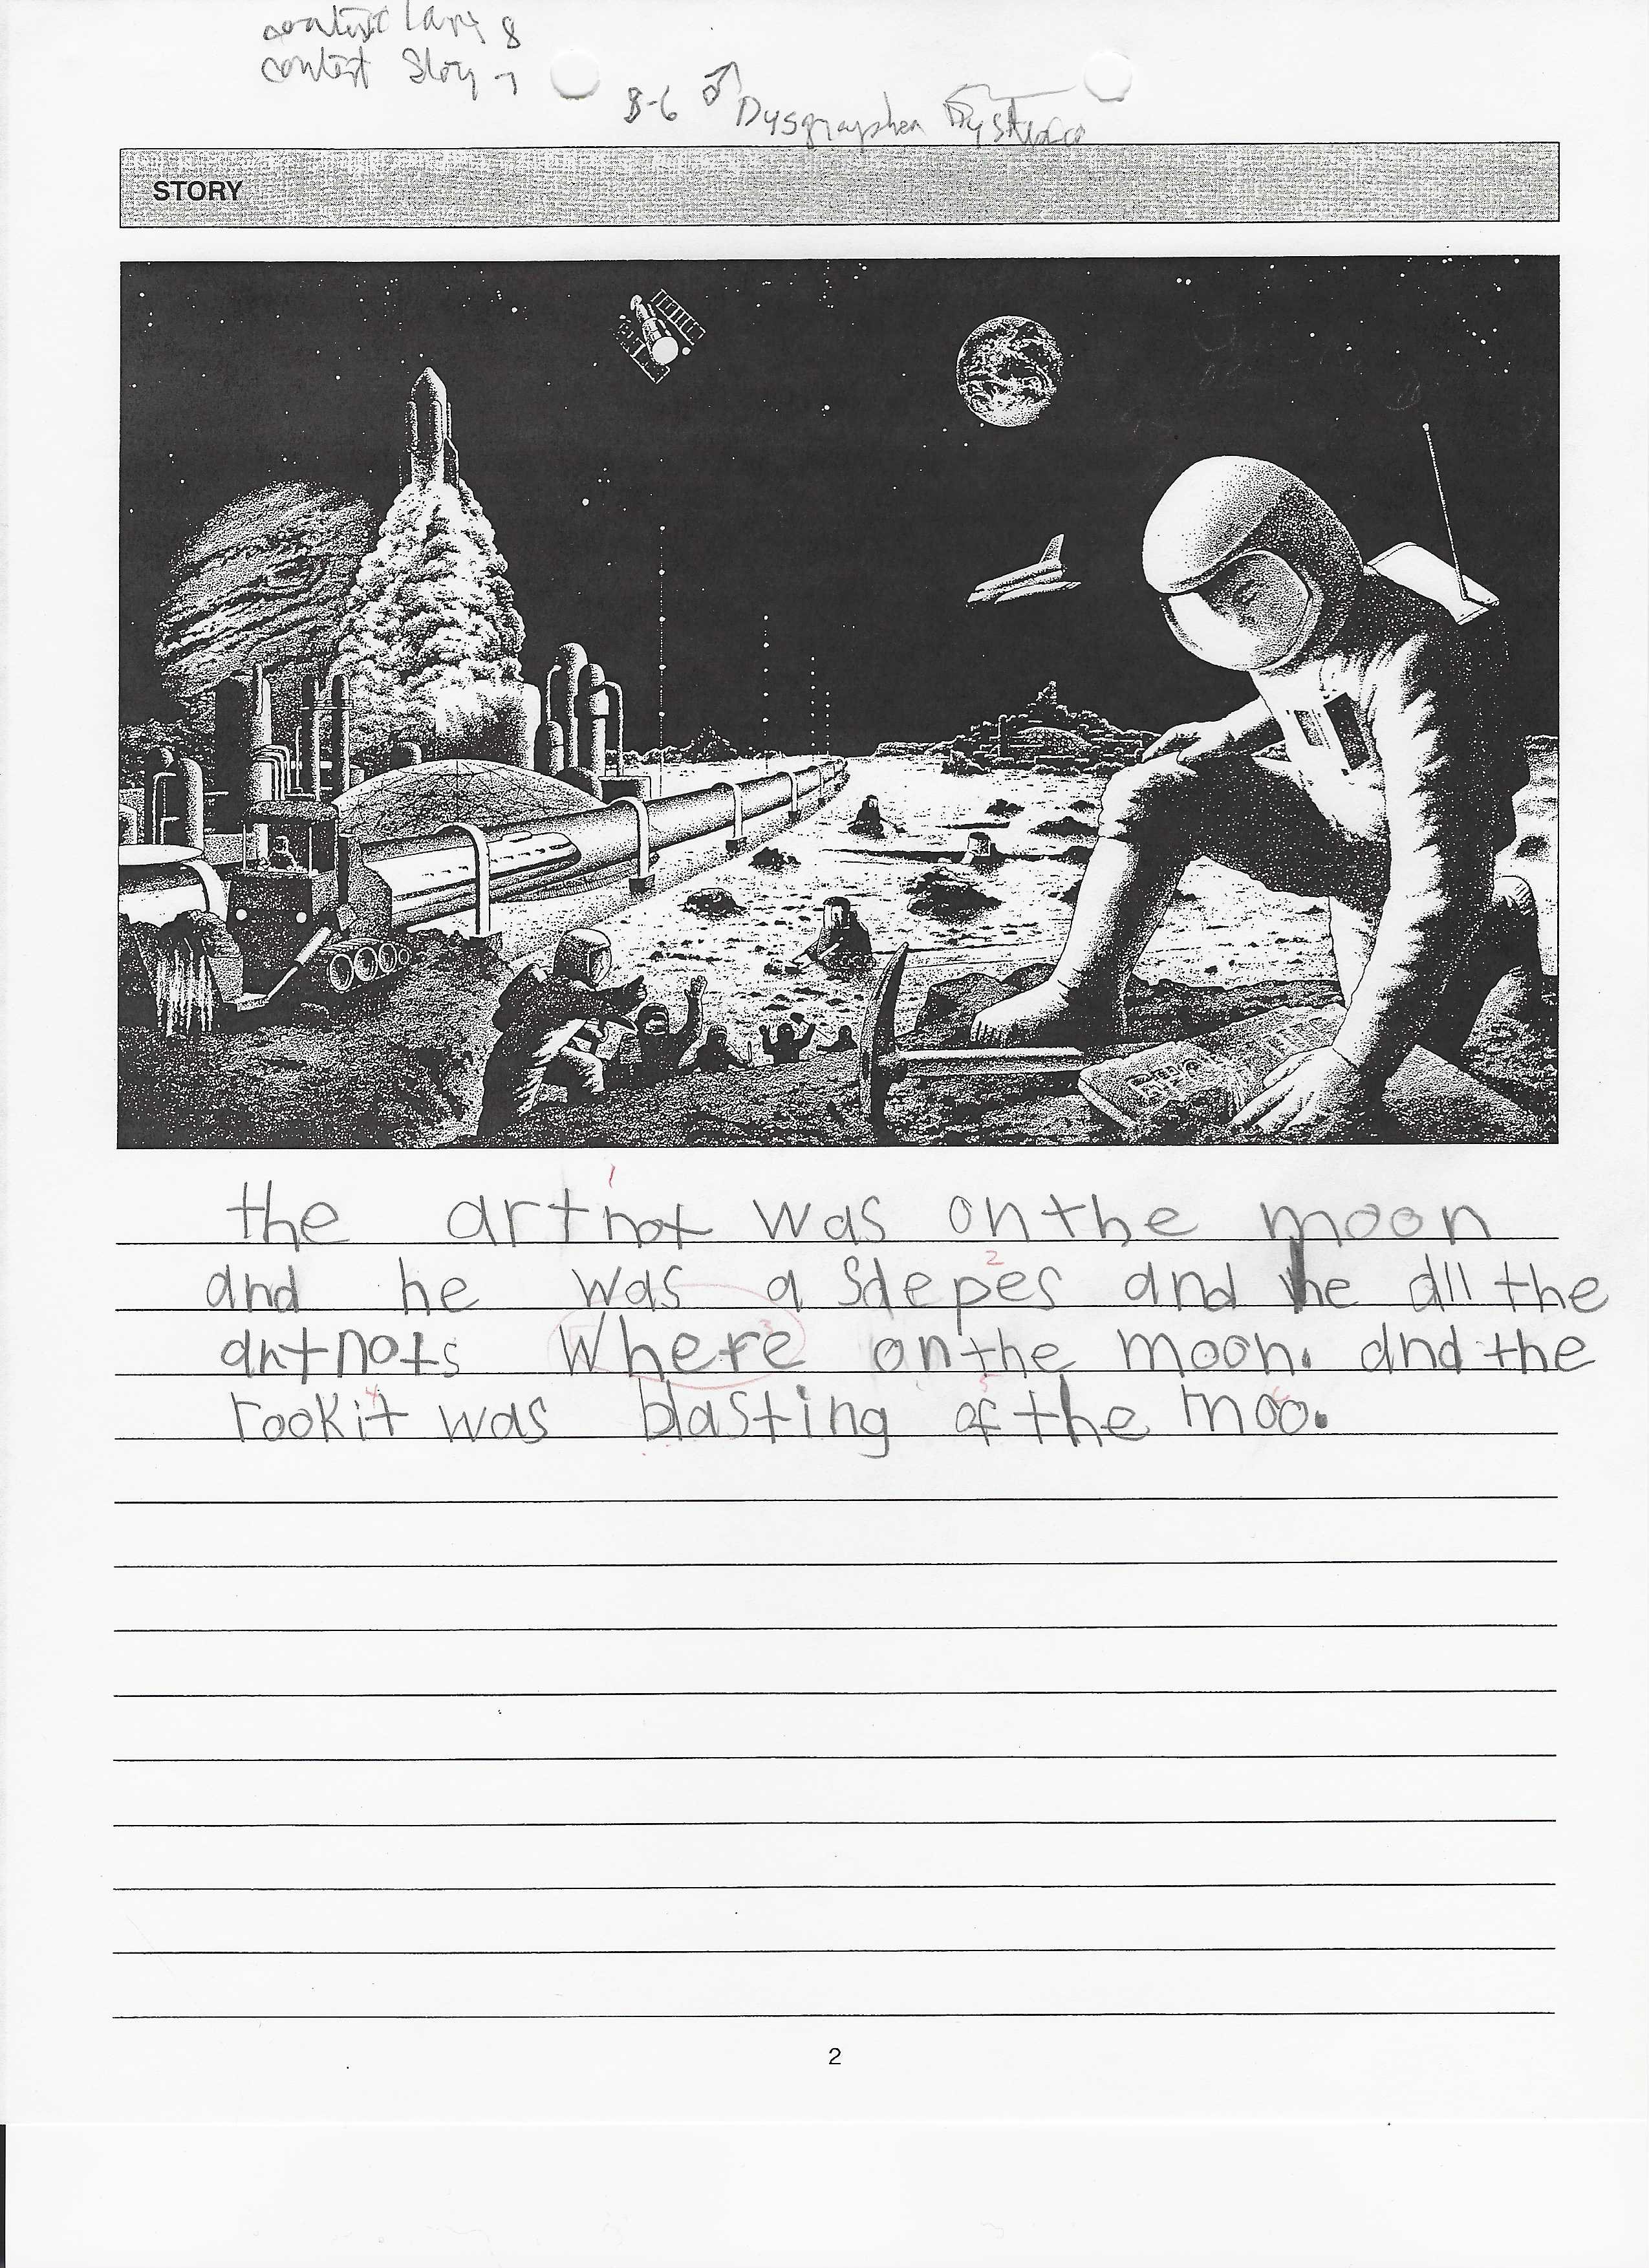 context Lang 8
context Story 7
8-6 ♂ Dysgraphia
STORY
the artnot was on the moon
and he was a sdepes and he all the
antnots Where on the moon. and the
rookit was blasting of the moo.
1
2
3
4
5
6
2